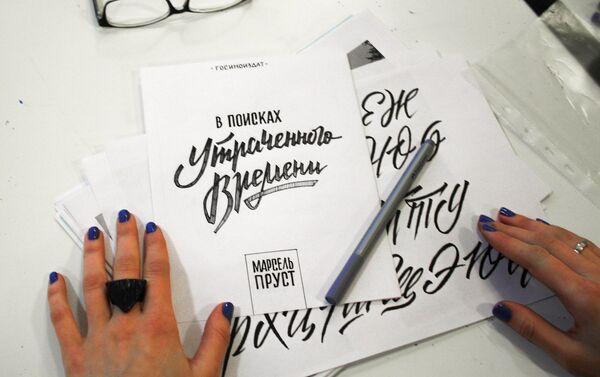 · ГОСИНОИЗДАТ ·
В ПОИСКАХ
Утраченного
Времени
МАРСЕЛЬ
ПРУСТ
ЕЖ
ПТУ